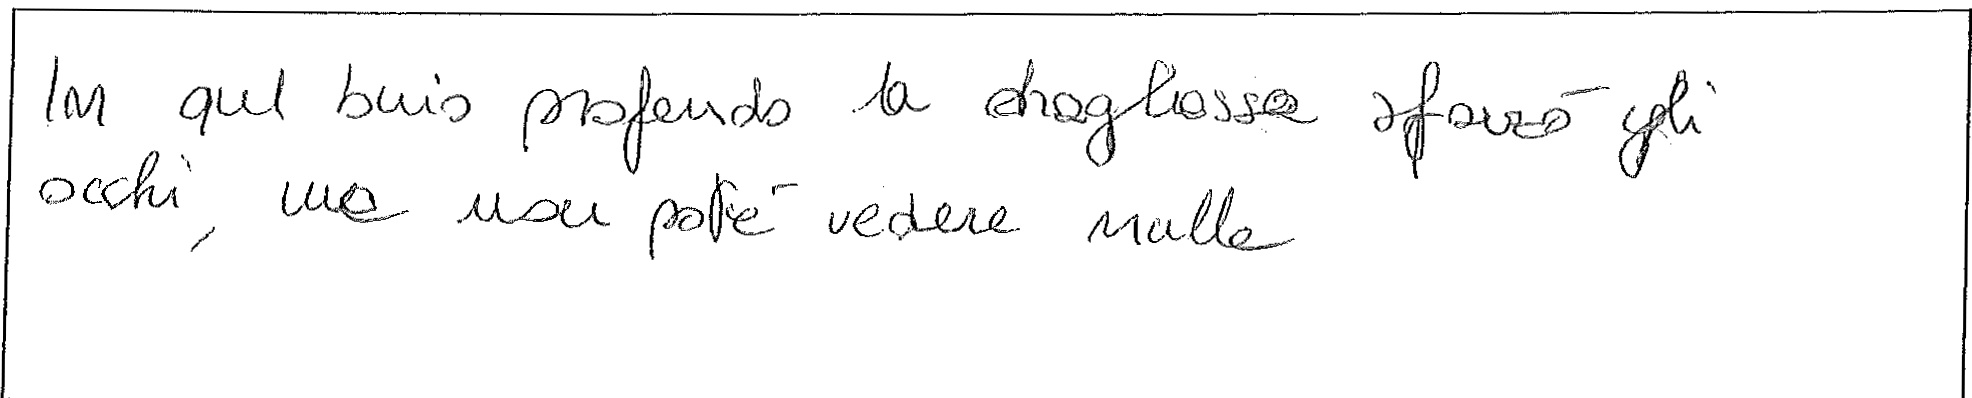 In quel buio profondo la draghessa sforzò gli
occhi, ma non poté vedere nulla